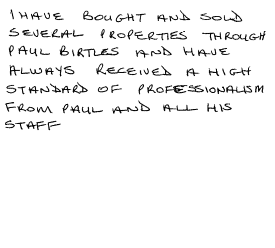 I HAVE BOUGHT AND SOLD
SEVERAL PROPERTIES THROUGH
PAUL BIRTLES AND HAVE
ALWAYS RECEIVED A HIGH
STANDARD OF PROFESSIONALISM
FROM PAUL AND ALL HIS
STAFF